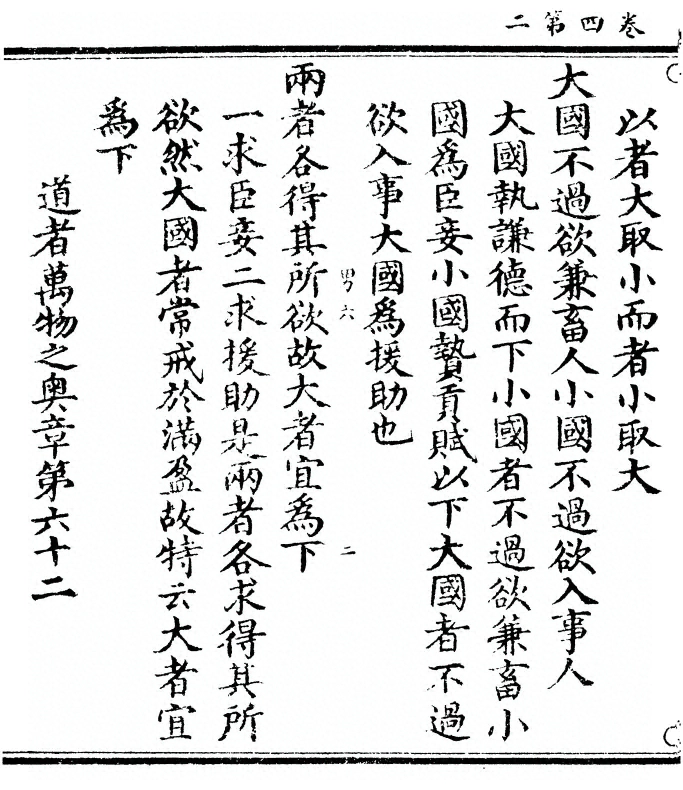 卷四第二
以者大取小而者小取大
大國不過欲兼畜人小國不過欲入事人
大國執謙德而下小國者不過欲兼畜小
國為臣妾小國贄貢賦以下大國者不過
欲入事大國為援助也
男六
二
兩者各得其所欲故大者宜為下
一求臣妾二求援助是兩者各求得其所
欲然大國者常戒於滿盈故特云大者宜
為下
道者萬物之奧章第六十二